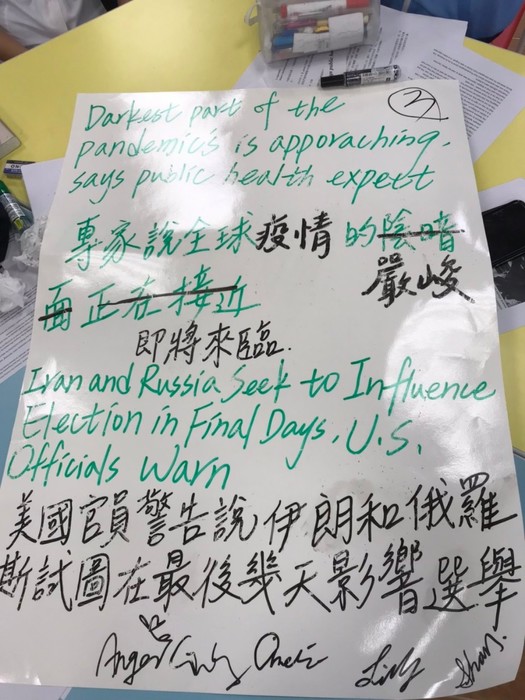 3
Darkest part of the
pandemic's is apporaching,
says public health expett
專家說全球疫情的陰暗
嚴峻
面正在接近
即將來臨.
Iran and Russia Seek to Influence
Election in Final Days, U.S.
Officials Warn
美國官員警告說伊朗和俄羅
斯試圖在最後幾天影響選舉